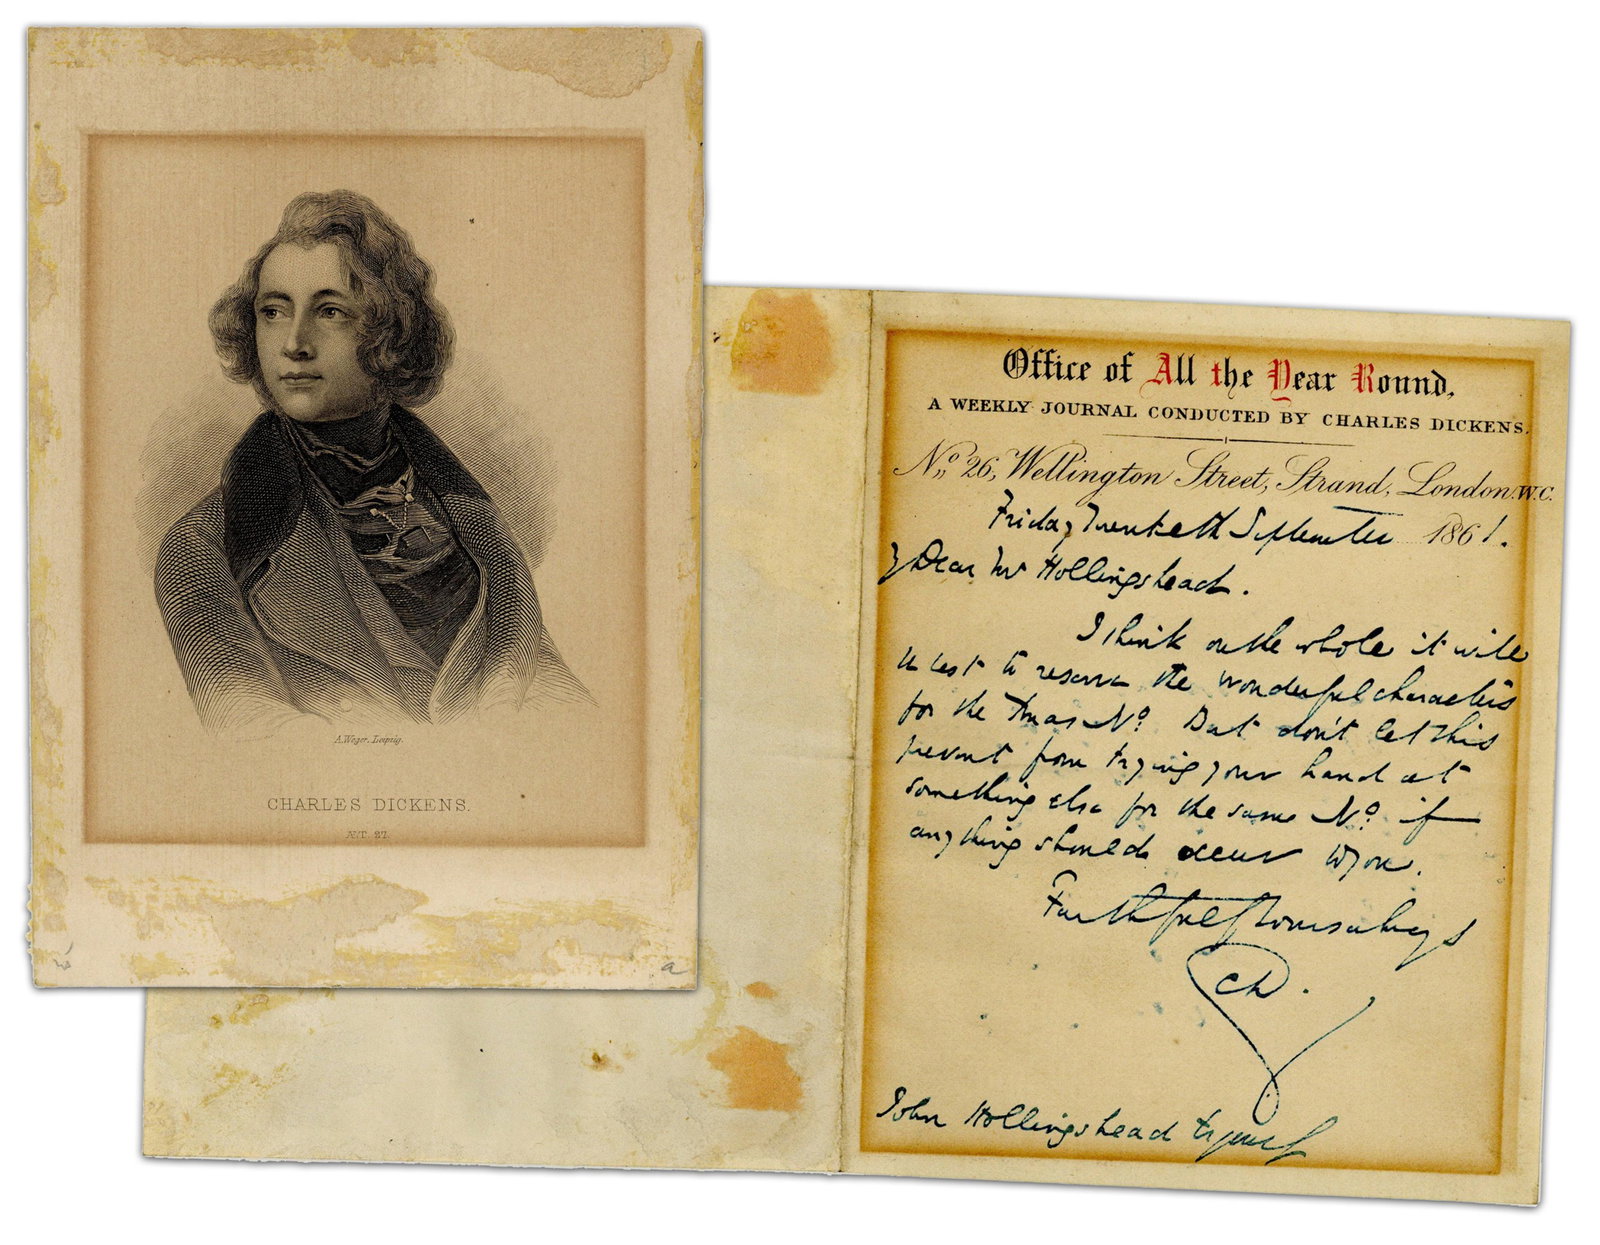 A. Weger, Leipzig.
CHARLES DICKENS.
ÆT. 27.
Office of All the Year Round,
A WEEKLY JOURNAL CONDUCTED BY CHARLES DICKENS.
No. 26, Wellington Street, Strand, London. W.C.
Friday Twentieth September 1861.
My Dear Mr Hollingshead.
I think on the whole it will
be best to reserve the wonderful characters
for the Xmas No. But don't let this
prevent from trying your hand at
something else for the same No. if
anything should occur to you.
Faithfully Yours always
CD.
John Hollingshead Esquire